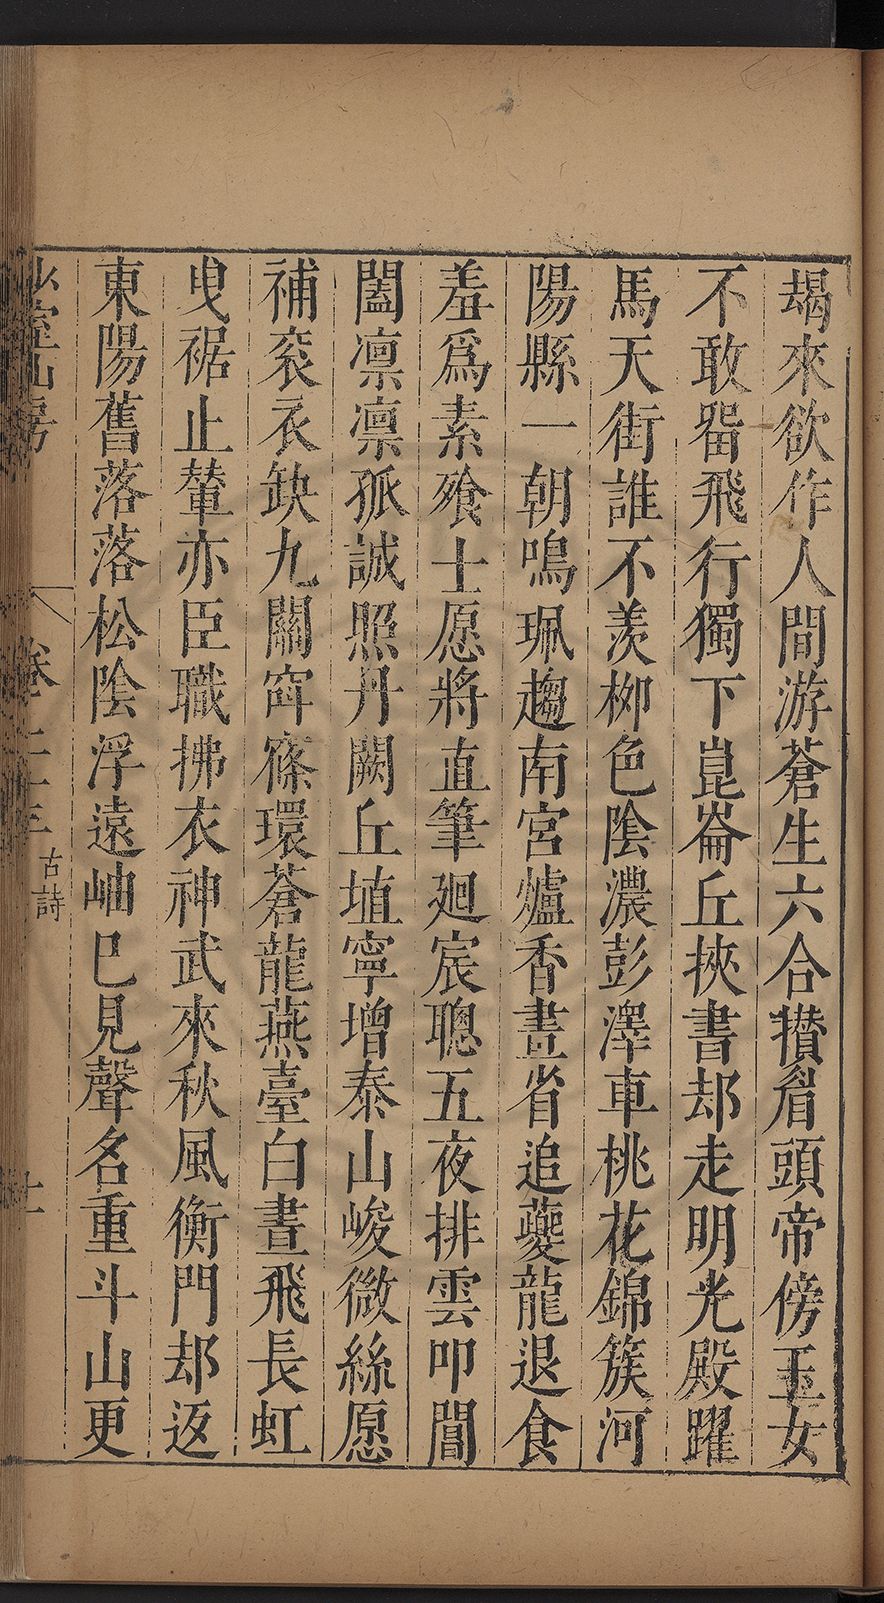 朅來欲作人間游蒼生六合攢眉頭帝傍玉女
不敢畱飛行獨下崑崙丘挾書却走明光殿躍
馬天街誰不羨柳色陰濃彭澤車桃花錦簇河
陽縣一朝鳴珮趨南宮爐香晝省追夔龍退食
羞爲素飱士愿將直筆廻宸聰五夜排雲叩閶
闔凛凛孤誠照丹闕丘埴寧增泰山峻微絲愿
補衮衣缺九關窅窱環蒼龍燕臺白晝飛長虹
曳裾止輦亦臣職拂衣神武來秋風衡門却返
東陽舊落落松陰浮遠岫巳見聲名重斗山更
少室山房
卷二十三
古詩
十一